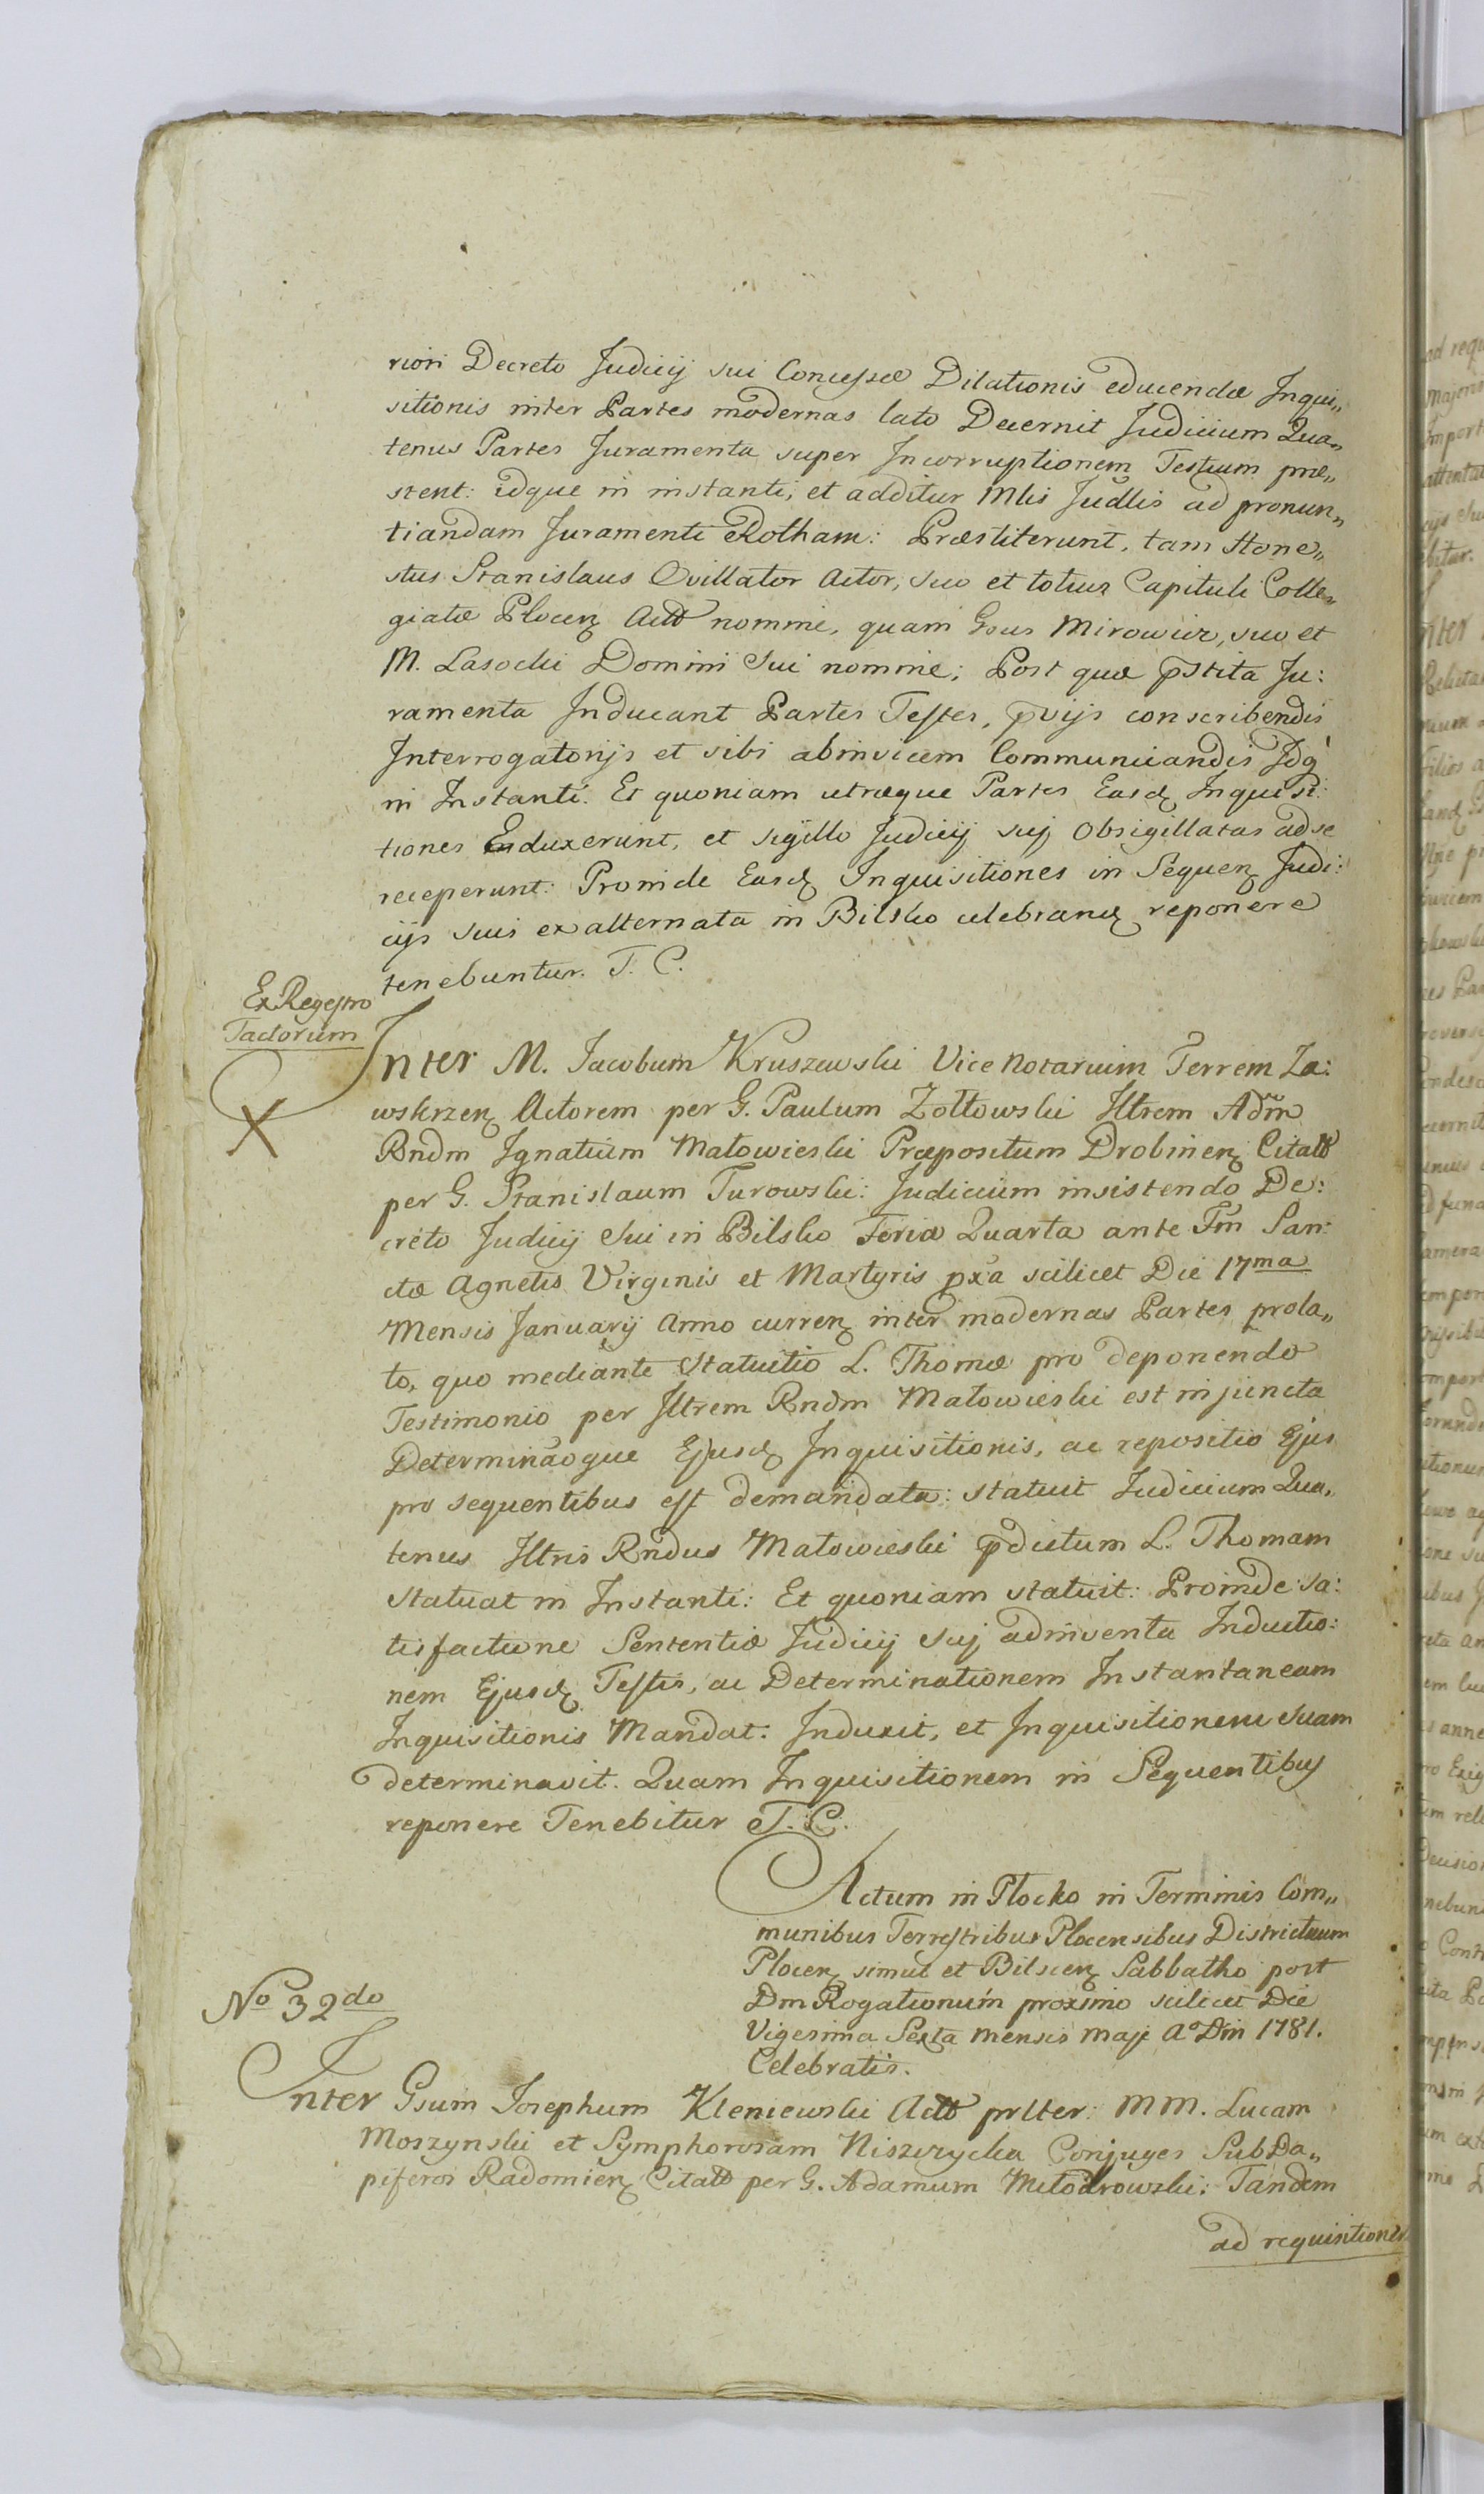 riori Decreto Judicij sui Concessæ Dilationis educendæ Inqui„
sitionis inter Partes modernas lato Decernit Judicium Qua„
tenus Partes Juramenta super Incorruptionem Testium præ„
stent: idque in instanti, et additur Mlis Judllis ad pronun„
tiandam Juramenti Rotham: Præstiterunt, tam Hone„
stus Stanislaus Ovillator Actor, suo et totius Capituli Colle„
giatæ Plocen Act nomine, quam Gsus Mirowicz, suo et
M. Lasocki Domini Sui nomine; Post quæ pstita Ju:
ramenta Inducant Partes Testes, pvijs conscribendis
Interrogatorijs et sibi abinvicem Communicandis Idq
in Instanti. Et quoniam utræque Partes Easd Inquisi:
tiones Eduxerunt, et sigillo Judicij sui Obsigillatas ad se
receperunt: Proinde Easd Inquisitiones in Sequen Judi:
cijs suis ex alternata in Bilsko celebrand reponere
tenebuntur. T. C.
Ex Regestro
Tactorum
Inter M. Jacobum Kruszewski Vice Notarium Terrem Za:
wskrzen Actorem per G. Paulum Zoltowski Iltrem Adm
Rndm Ignatium Małowieski Præpositum Drobinen Citatt
per G. Stanislaum Turowski: Judicium insistendo De:
creto Judicij Sui in Bilsko Feria Quarta ante Fm San:
ctæ Agnetis Virginis et Martyris pxa scilicet Die 17ma
Mensis Januarij Anno curren inter modernas Partes prola„
to, quo mediante Statuitio L. Thomæ pro deponendo
Testimonio per Iltrem Rndm Małowieski est injuncta
Determinaoque Ejusd Inquisitionis, ac repositio Ejus
pro sequentibus est demandata: statuit Judicium Qua„
tenus Iltris Rndus Małowieski pdictum L. Thomam
statuat in Instanti: Et quoniam statuit: Proinde sa:
tisfactione Sententiæ Judicij Sui adinventa Inductio:
nem Ejusd Testis, ac Determinationem Instantaneam
Inquisitionis Mandat: Induxit, et Inquisitionem Suam
determinavit. Quam Inquisitionem in Sequentibus
reponere Tenebitur T. C.
Actum in Płocko in Terminis Com„
munibus Terrestribus Plocensibus Districtuum
Plocen simul et Bilscen Sabbatho post
Dm Rogationum proximo scilicet Die
Vigesima Sexta mensis Maji Ao Dni 1781.
Celebratis.
No 32do
Inter Gsum Josephum Kleniewski Act prlter: MM. Lucam
Moszynski et Symphorosam Niszczycka Conjuges SubDa„
piferos Radomien Citatt per G. Adamum Młodrowski: Tandem
ad requisitiones